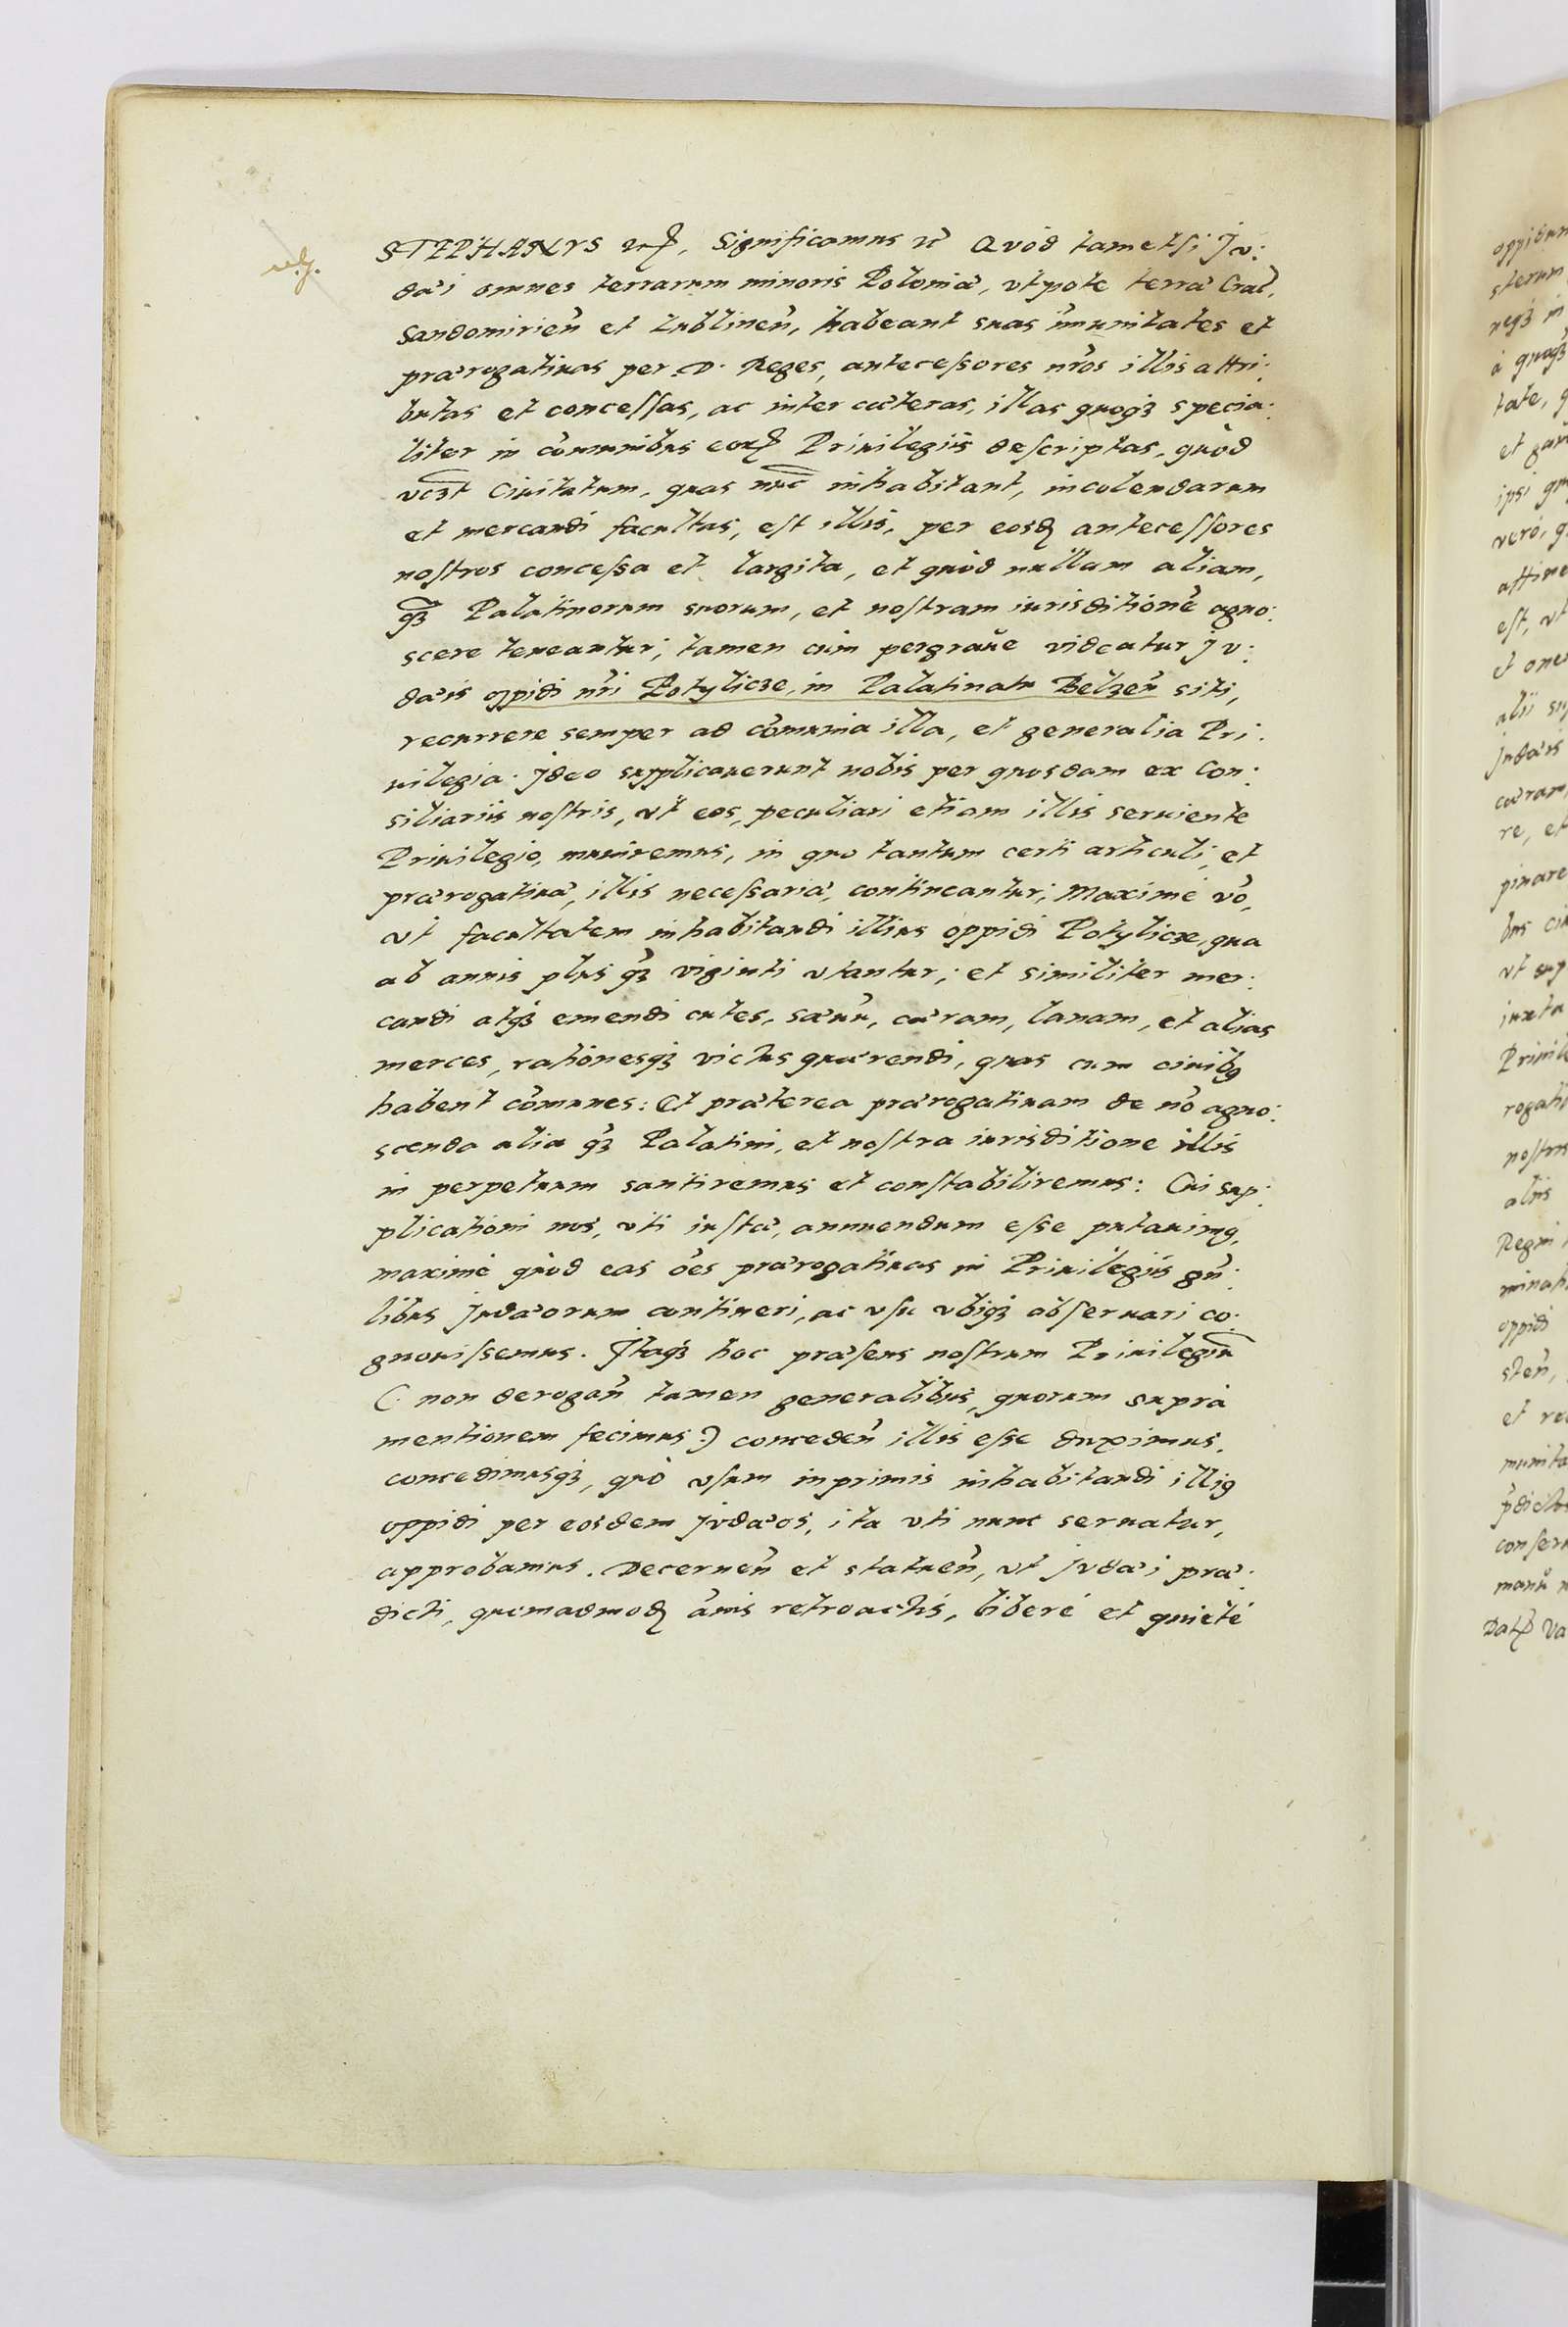 STEPHANVS etc, Significamus etc̃ Qvòd tametsi Jv:
dæi omnes terrarum minoris Poloniæ, vtpote terræ Crac̃,
Sandomirien̄ et Lublinen̄, habeant suas im̄unitates et
prærogatiuas per D. Reges, antecessores nr̃os illis attri:
butas et concessas, ac inter cæteras, illas quoqȝ specia:
liter in com̄unibus eoꝝ Priuilegijs descriptas, quòd
vcȝt Ciuitatum, quas nuc̄ inhabitant, incolendarum
et mercandi facultas, est illis, per eosđ antecessores
nostros concessa et largita, et quòd nullam aliam,
qȝ̃ Palatinorum suorum, et nostram iurisditionē agno:
scere teneantur; tamen cùm pergraue videatur Jv:
dæis oppidi nr̃i Potylicze, in Palatinatu Belzen̄ siti,
recurrere semper ad com̄unia illa, et generalia Pri:
uilegia. Jdeo supplicauerunt nobis per quosdam ex Con:
siliarijs nostris, vt eos, peculiari etiam illis seruiente
Priuilegio, muniremus, in quo tantum certi articuli, et
prærogatiuæ, illis necessariæ, contineantur; Maximè vō,
vt facultatem inhabitandi illius oppidi Potylicze, qua
ab annis plus qȝ̃ viginti vtantur; et similiter mer:
candi atqȝ emendi cutes, sæuū, cæram, lanam, et alias
merces, rationesqȝ victus quærendi, quas cum ciuibꝰ
habent com̄unes: Et præterea prærogatiuam de nō agno:
scenda alia qȝ̃ Palatini, et nostra iurisditione illis
in perpetuum santiremus et constabiliremus: Cui sup:
plicationi nos, vti iustæ, annuendum esse putauimꝰ,
maximè quòd eas ōes prærogatiuas in Priuilegijs gn̄:
libus Judæorum contineri, ac vsu vbiqȝ obseruari co:
gnouissemus. Jtaqȝ hoc præsens nostrum Priuilegiū
(: non derogan̄ tamen generalibus, quorum suprà
mentionem fecimus :) conceden̄ illis esse duximus,
concedimusqȝ, quò vsum inprimis inhabitandi illiꝰ
oppidi per eosdem Jvdæos, ita vti nunc seruatur,
approbamus. Decernen̄ et statuen̄, vt Jvdæi præ:
dicti, quemadmođ an̄is retroactis, liberè et quietè